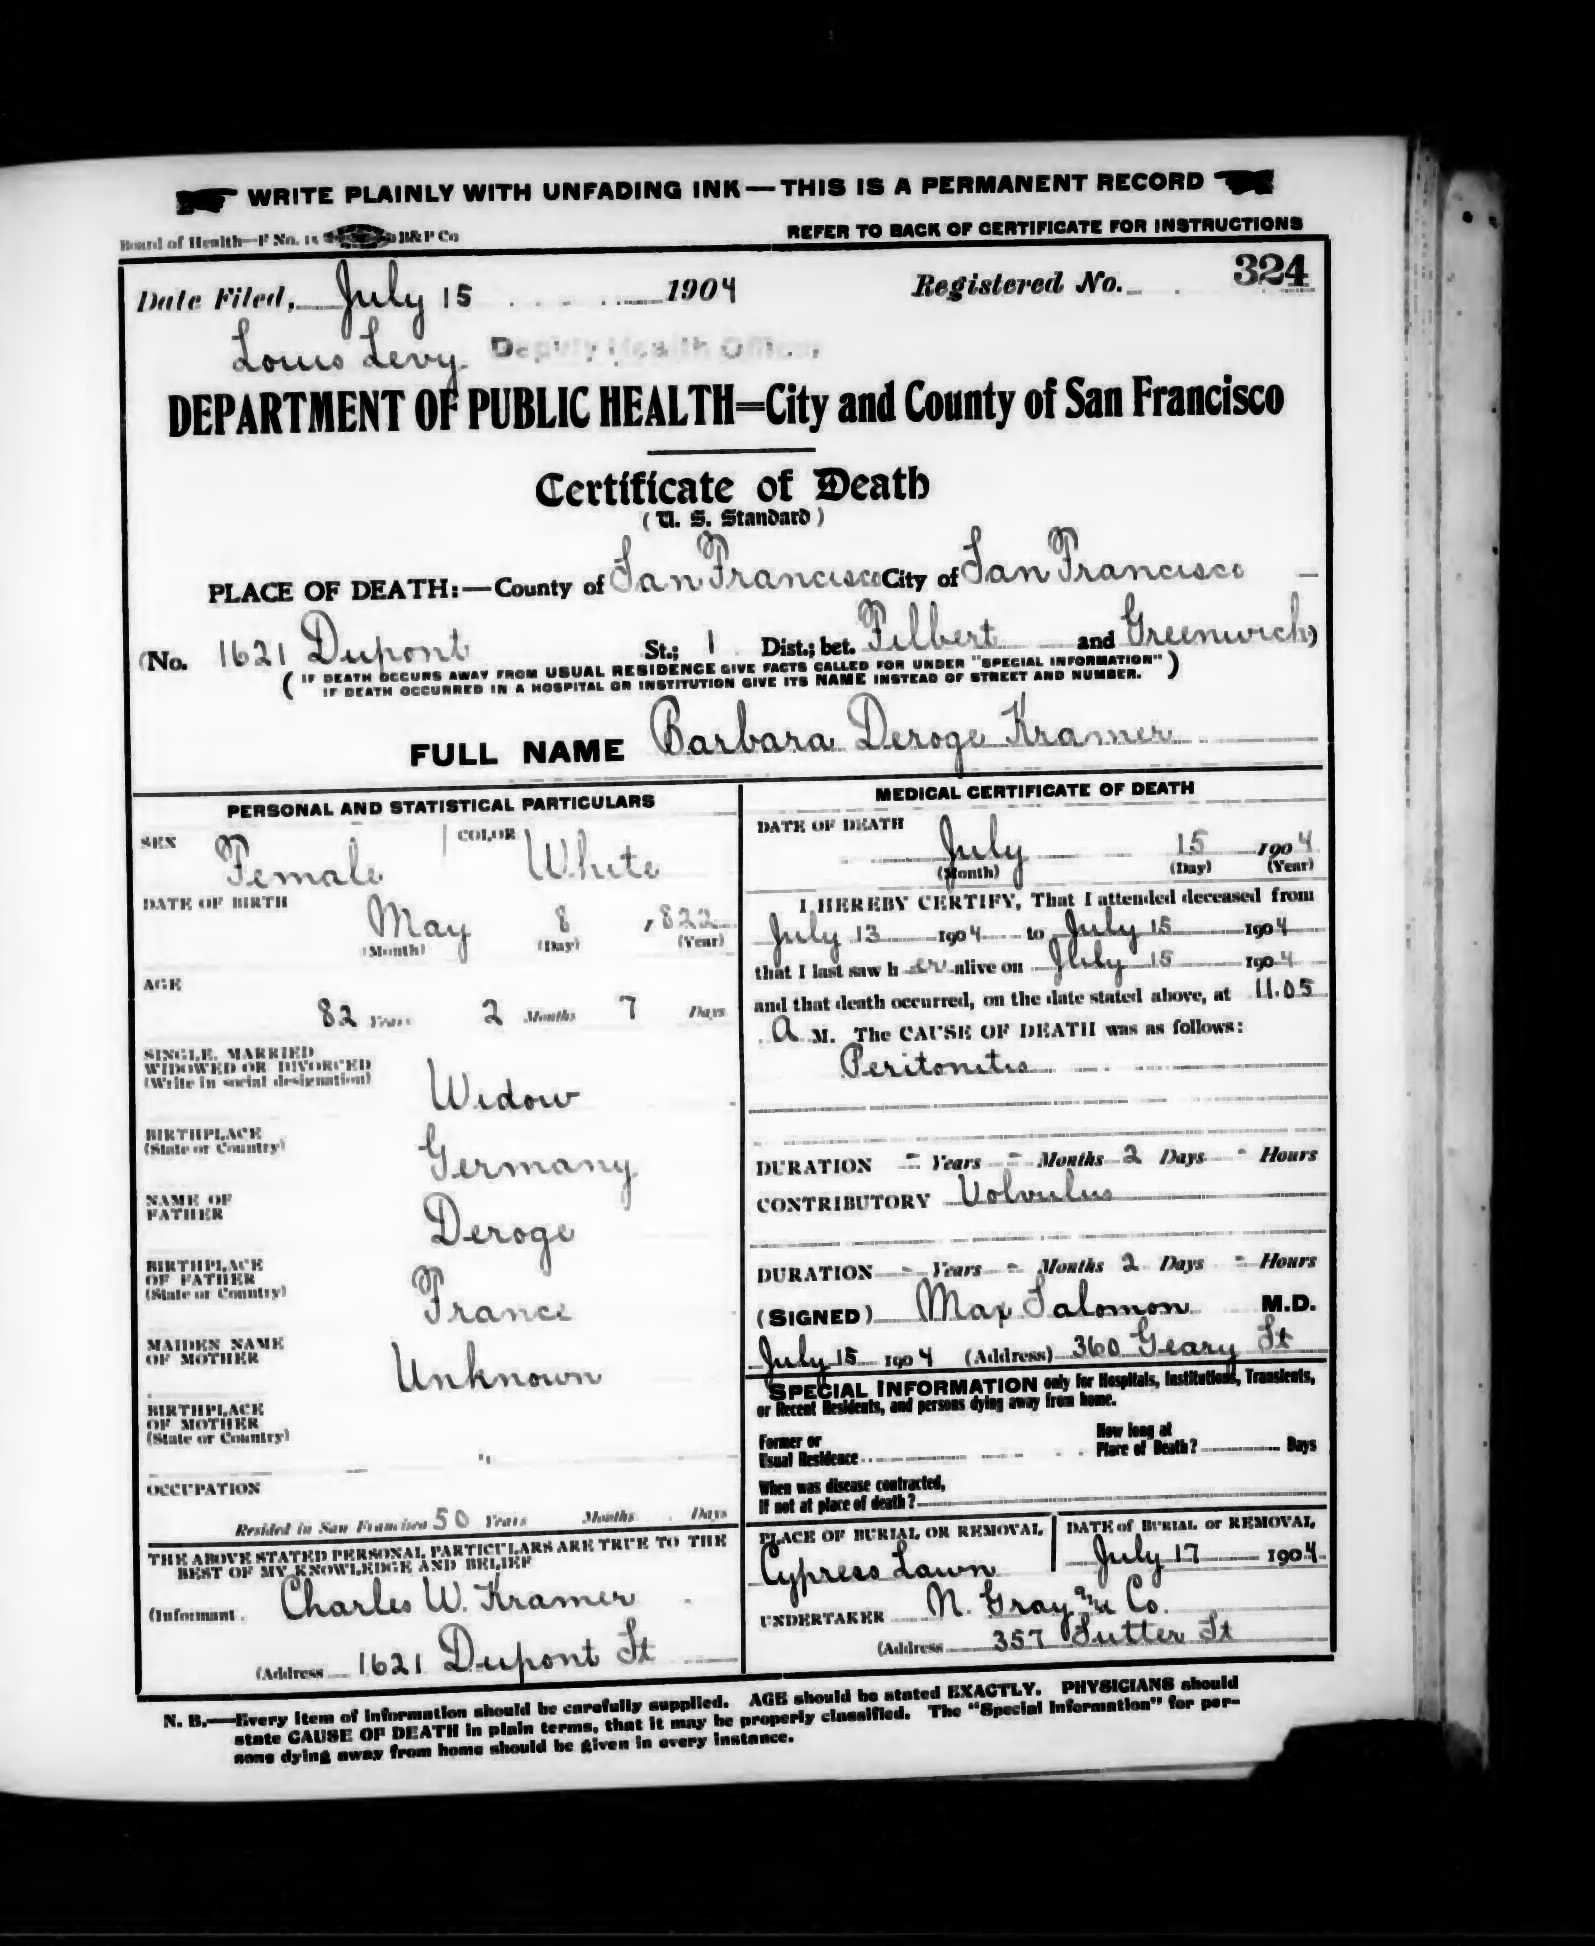 WRITE PLAINLY WITH UNFADING INK—THIS IS A PERMANENT RECORD
Board of Health—F No. B&P Co
REFER TO BACK OF CERTIFICATE FOR INSTRUCTIONS
Date Filed, July 15 1904 Registered No. 324
Louis Levy Deputy Health Officer
DEPARTMENT OF PUBLIC HEALTH=City and County of San Francisco
Certificate of Death
(U. S. Standard)
PLACE OF DEATH:—County of San Francisco City of San Francisco
(No. 1621 Dupont St.; 1 Dist.; bet. Filbert and Greenwich)
(IF DEATH OCCURS AWAY FROM USUAL RESIDENCE GIVE FACTS CALLED FOR UNDER "SPECIAL INFORMATION"
IF DEATH OCCURRED IN A HOSPITAL OR INSTITUTION GIVE ITS NAME INSTEAD OF STREET AND NUMBER.)
FULL NAME Barbara Deroge Kramer
PERSONAL AND STATISTICAL PARTICULARS
SEX Female COLOR White
DATE OF BIRTH
May 8 , 822
(Month) (Day) (Year)
AGE
82 Years 2 Months 7 Days
SINGLE, MARRIED
WIDOWED OR DIVORCED
(Write in social designation) Widow
BIRTHPLACE
(State or Country) Germany
NAME OF
FATHER Deroge
BIRTHPLACE
OF FATHER
(State or Country) France
MAIDEN NAME
OF MOTHER Unknown
BIRTHPLACE
OF MOTHER
(State or Country)
"
OCCUPATION
Resided in San Francisco 50 Years Months Days
THE ABOVE STATED PERSONAL PARTICULARS ARE TRUE TO THE
BEST OF MY KNOWLEDGE AND BELIEF
(Informant Charles W. Kramer
(Address 1621 Dupont St
MEDICAL CERTIFICATE OF DEATH
DATE OF DEATH
July 15 1904
(Month) (Day) (Year)
I HEREBY CERTIFY, That I attended deceased from
July 13 1904 to July 15 1904
that I last saw her alive on July 15 1904
and that death occurred, on the date stated above, at 11.05
A M. The CAUSE OF DEATH was as follows:
Peritonitis
DURATION - Years - Months 2 Days - Hours
CONTRIBUTORY Volvulus
DURATION - Years - Months 2 Days - Hours
(SIGNED) Max Salomon M.D.
July 15 1904 (Address) 360 Geary St
SPECIAL INFORMATION only for Hospitals, Institutions, Transients,
or Recent Residents, and persons dying away from home.
Former or
Usual Residence
How long at
Place of Death? Days
When was disease contracted,
If not at place of death?
PLACE OF BURIAL OR REMOVAL
Cypress Lawn
DATE of BURIAL or REMOVAL
July 17 1904
UNDERTAKER N. Gray and Co.
(Address 357 Sutter St
N. B.—Every item of information should be carefully supplied. AGE should be stated EXACTLY. PHYSICIANS should
state CAUSE OF DEATH in plain terms, that it may be properly classified. The "Special Information" for per-
sons dying away from home should be given in every instance.